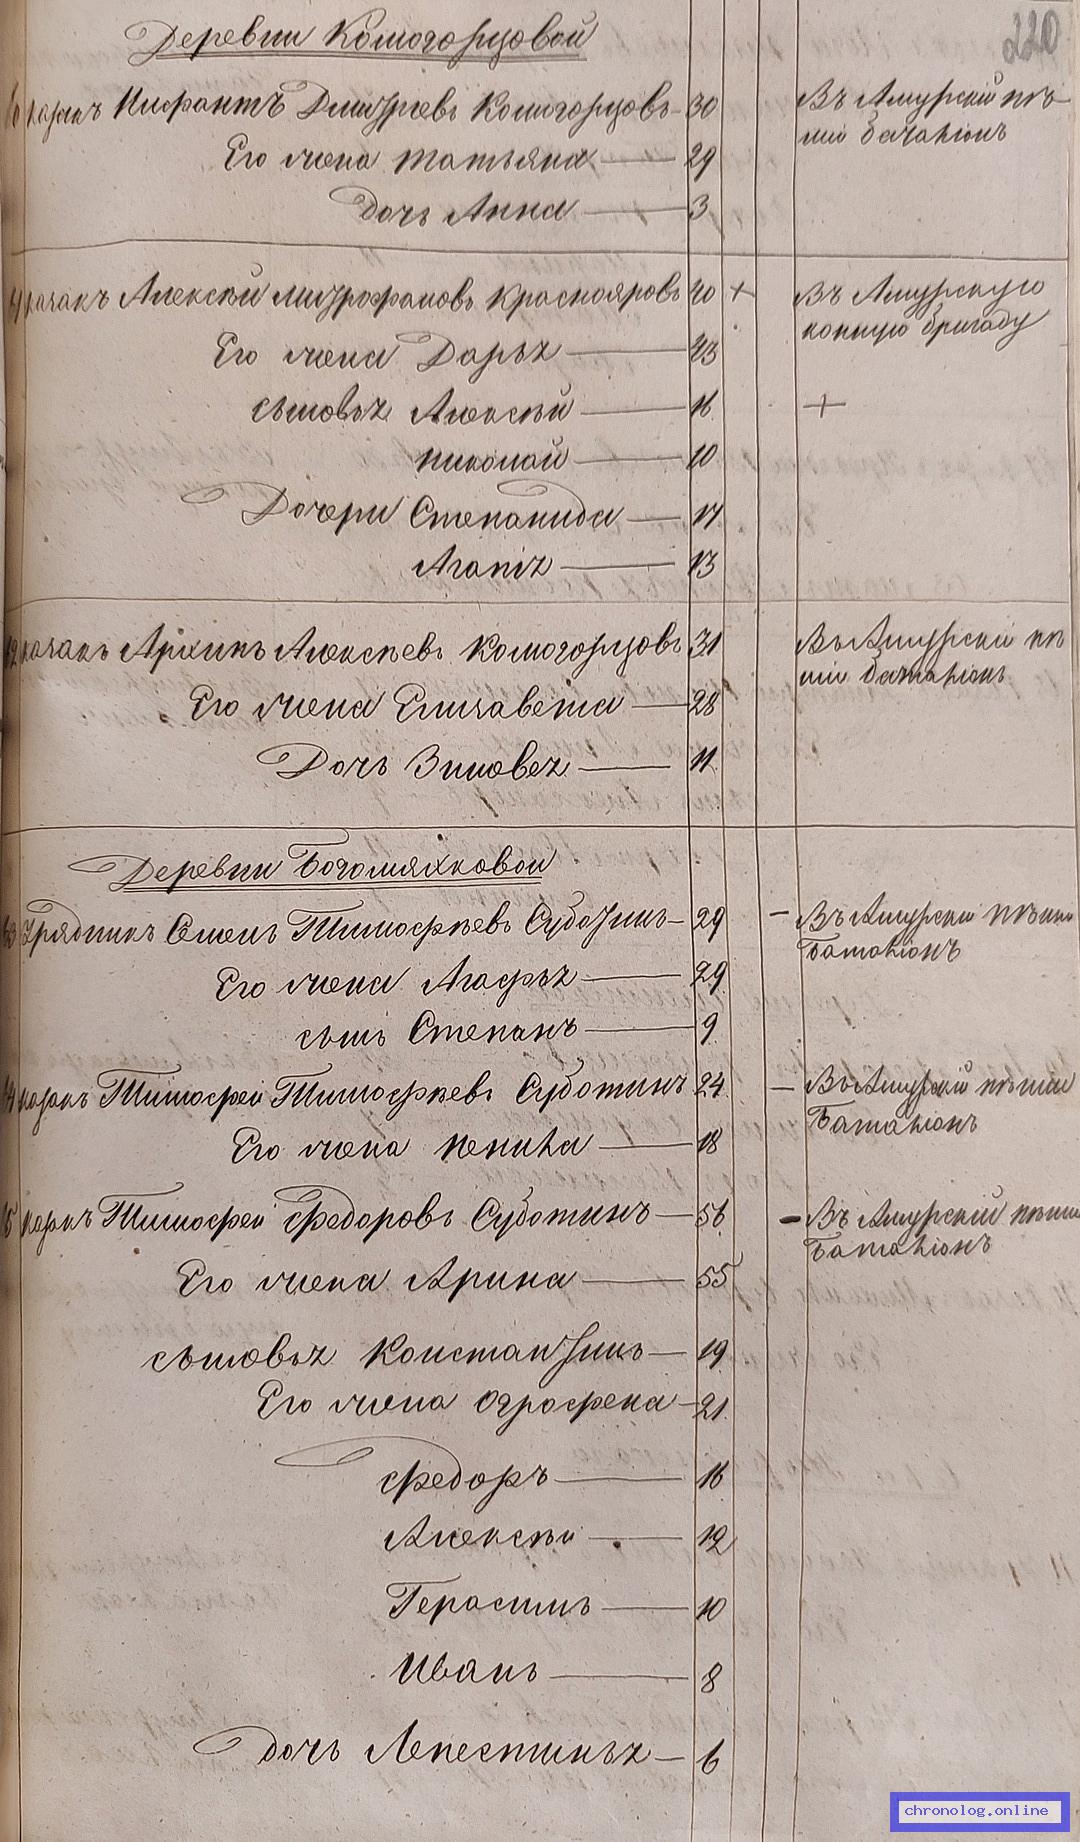 220
Деревни Комогорцовой
10 казакъ Нифантъ Дмитріевъ Комогорцовъ 30 Въ Амурскій пѣ-
шій баталіонъ
Его жена Татьяна 29
Дочь Анна 3
11 казакъ Алексѣй Митрофановъ Краснояровъ 40 + Въ Амурскую
конную бригаду
Его жена Дарья 43
сыновья Алексѣй 16 +
Николай 10
Дочери Степанида 17
Агапія 13
12 казакъ Архипъ Алексѣевъ Комогорцовъ 31 Въ Амурскій пѣ
шій баталіонъ
Его жена Елизавета 28
Дочь Зиновея 11
Деревни Богомяхковой
13 Урядникъ Семенъ Тимофѣевъ Суботинъ 29 — Въ Амурскій пѣшій
Баталіонъ
Его жена Агафья 29
сынъ Степанъ 9
14 казакъ Тимофей Тимофѣевъ Суботинъ 24 — Въ Амурскій пѣшій
Баталіонъ
Его жена Ненила 18
15 казакъ Тимофей Федоровъ Суботинъ 56 — Въ Амурскій пѣший
Баталіонъ
Его жена Арина 55
сыновья Константинъ 19
Его жена Ографена 21
Федоръ 16
Алексѣй 12
Герасимъ 10
Иванъ 8
дочь Лепестинья 6
chronolog.online